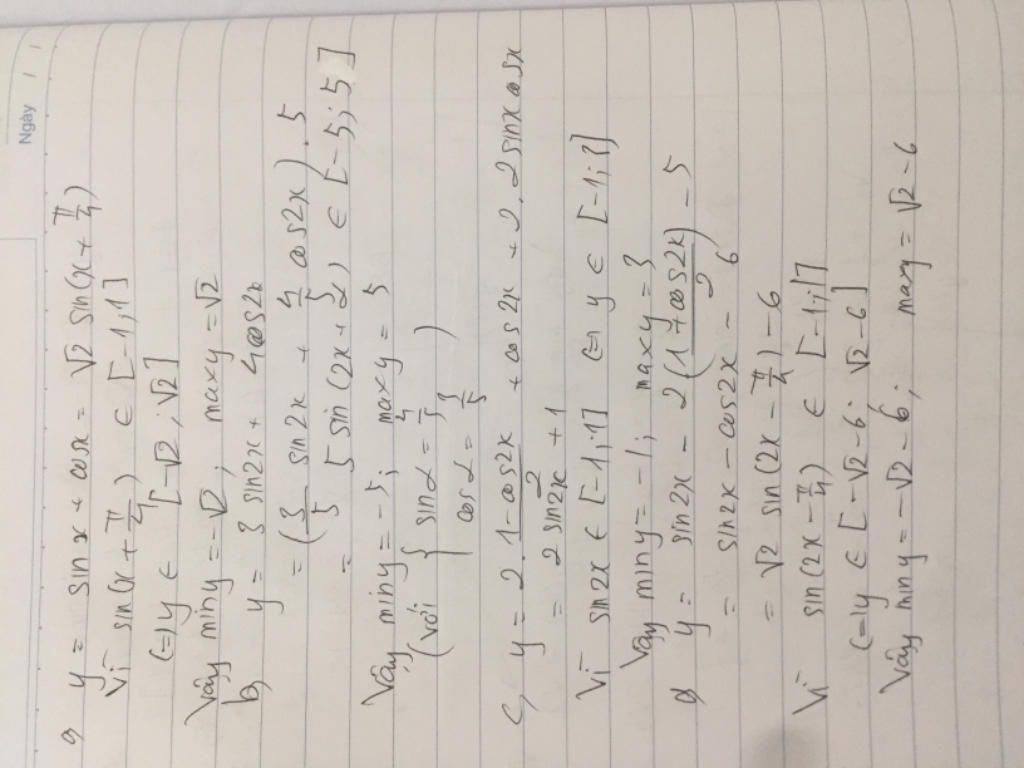 Ngày / /
a) y = sin x + cos x = √2 sin(x + π/4)
Vì sin(x + π/4) ∈ [-1;1]
(=) y ∈ [-√2; √2]
Vậy min y = -√2; max y = √2
b) y = 3 sin2x + 4cos2x
= (3/5 sin2x + 4/5 cos2x).5
= 5 sin(2x + α) ∈ [-5; 5]
Vậy min y = -5; max y = 5
(với { sinα = 4/5
cosα = 3/5 )
c) y = 2. (1-cos2x)/2 + cos2x + 2. 2 sinx cosx
= 2 sin2x + 1
Vì sin2x ∈ [-1;1] (=) y ∈ [-1;3]
Vậy min y = -1; max y = 3
d) y = sin2x - 2((1+cos2x)/2) - 5
= sin2x - cos2x - 6
= √2 sin(2x - π/4) - 6
Vì sin(2x - π/4) ∈ [-1;1]
(=) y ∈ [-√2-6; √2-6]
Vậy min y = -√2-6; max y = √2-6